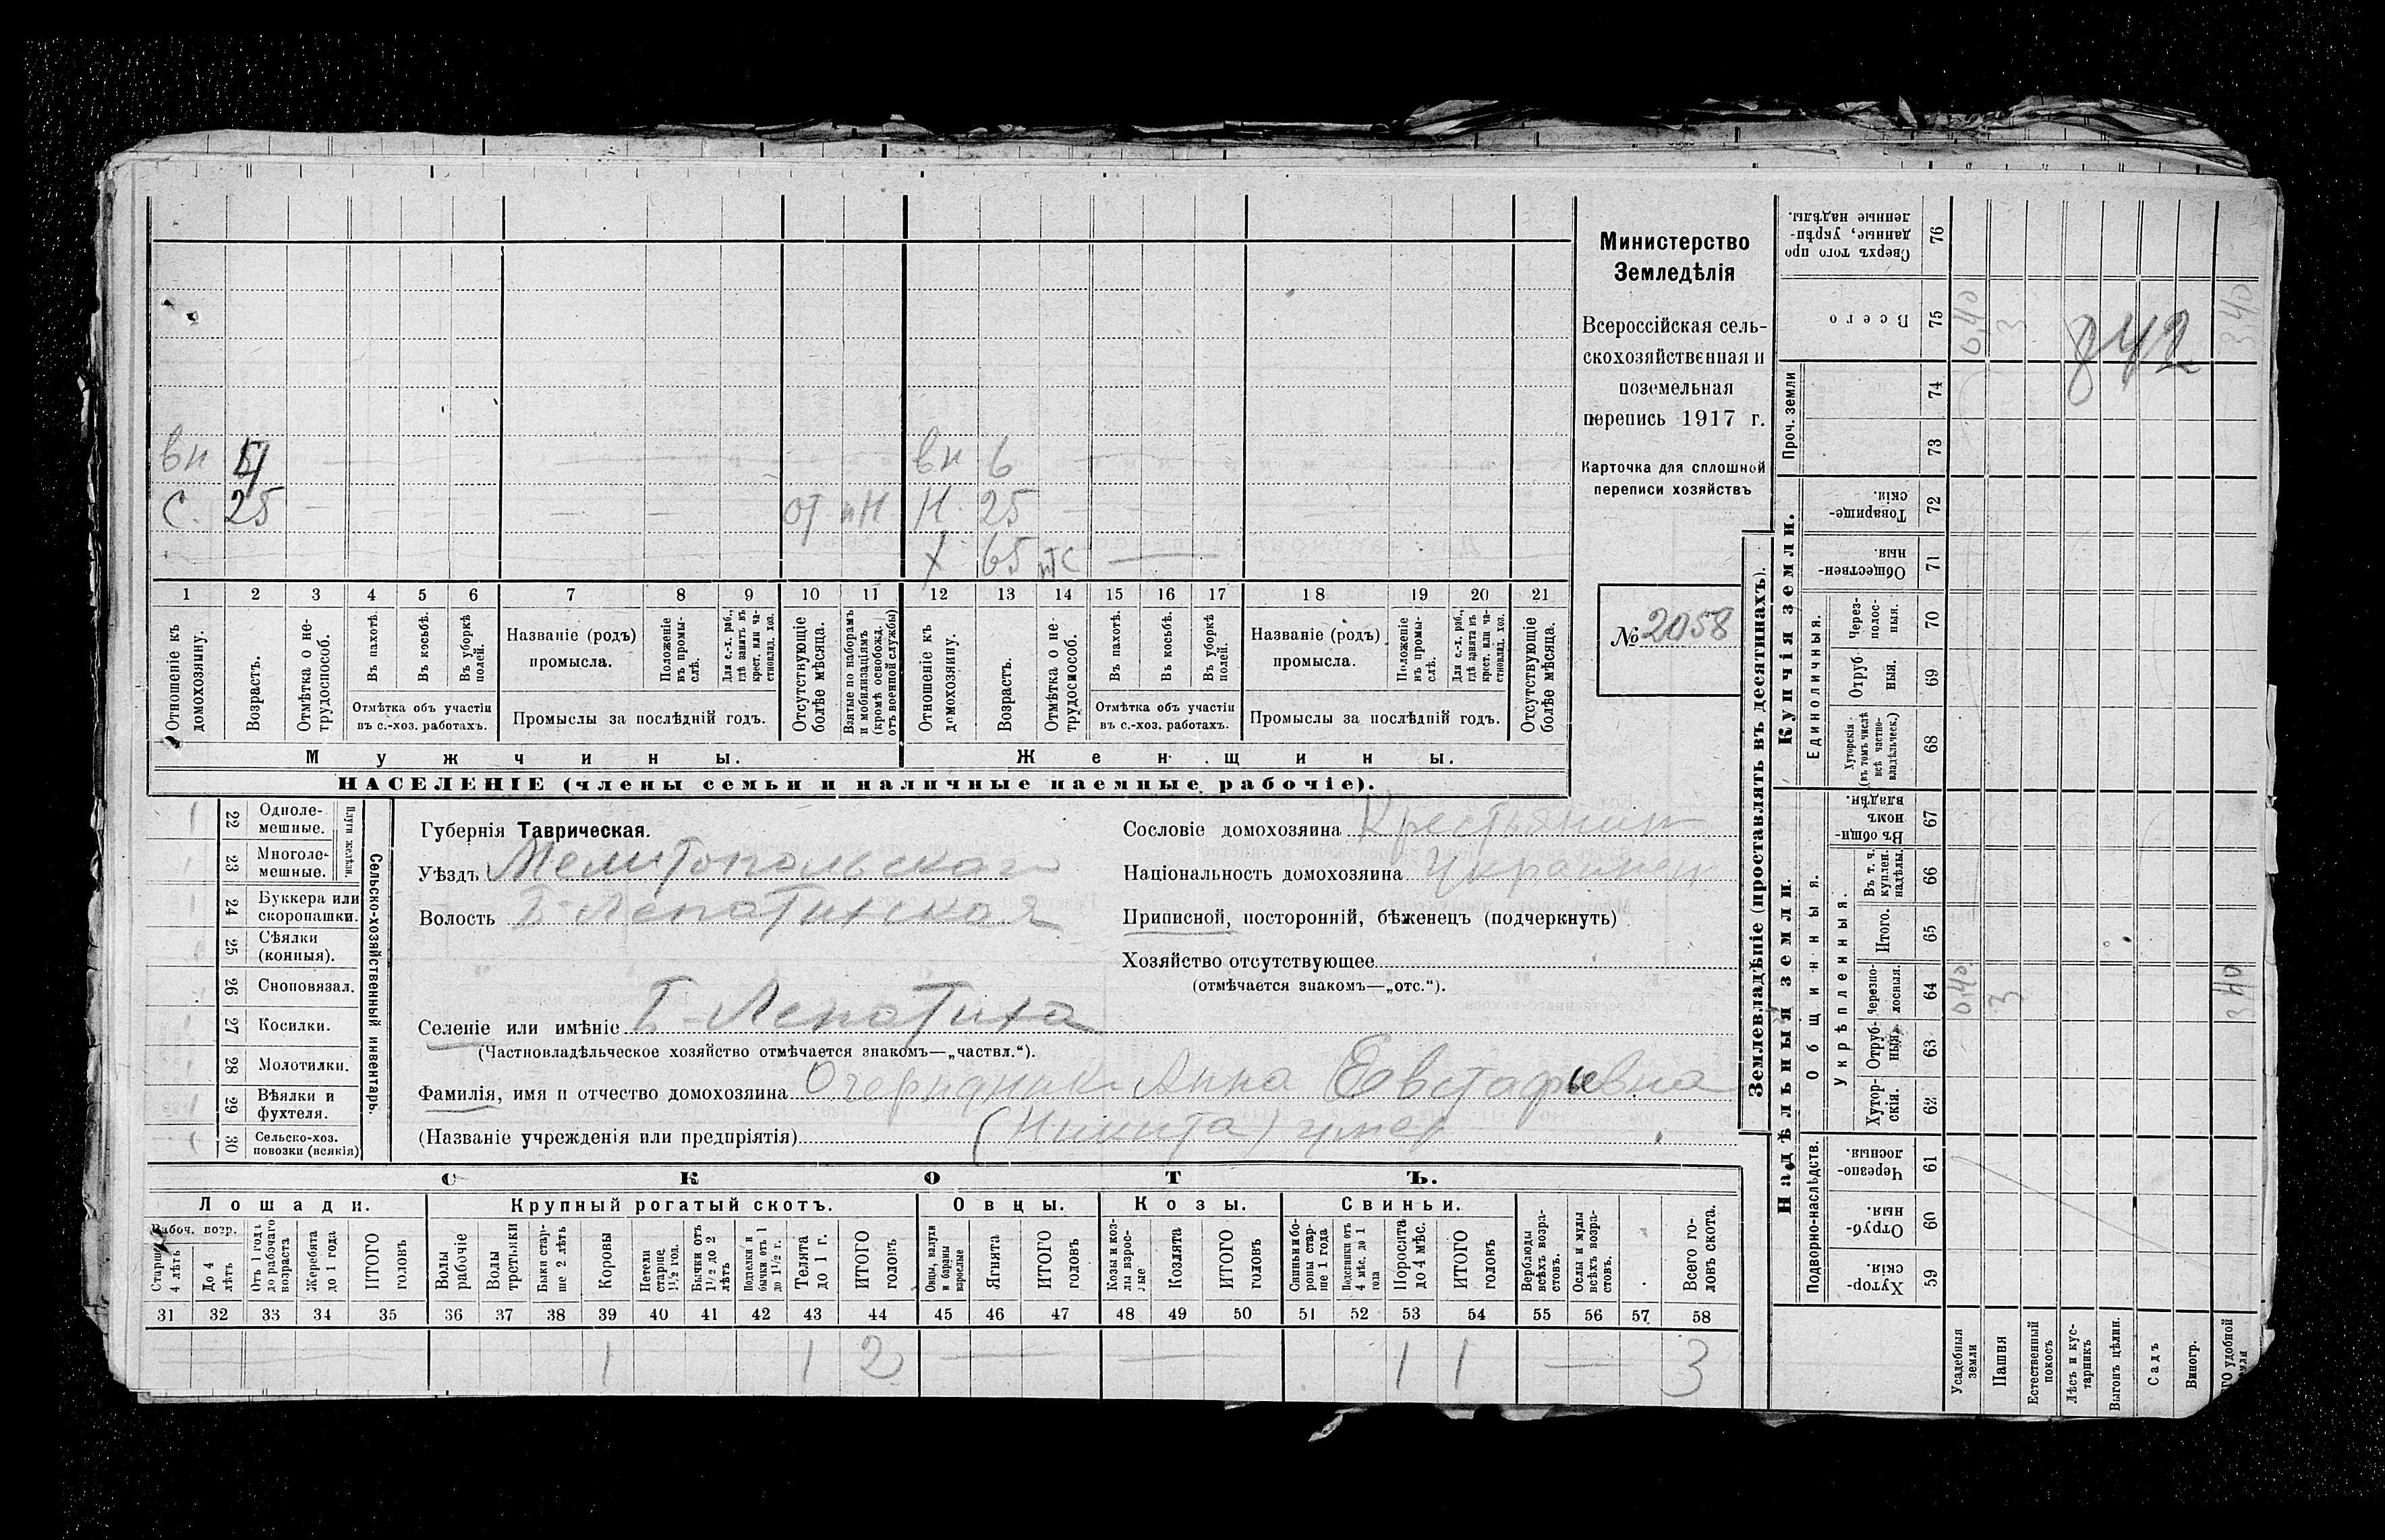 вн 5/4 вн 6
с. 25 — — — — — — от. вн Н. 25 — —
Х 65 нтс —
1 2 3 4 5 6 7 8 9 10 11 12 13 14 15 16 17 18 19 20 21
Отношеніе къ домохозяину.
Возрастъ.
Отмѣтка о нетрудоспособ.
Въ пахотѣ.
Въ косьбѣ.
Въ уборкѣ полей.
Отмѣтка объ участіи въ с.-хоз. работахъ.
Названіе (родъ) промысла.
Положеніе въ промыслѣ.
Для с.-х. раб., гдѣ занятъ въ крест. или частновлад. хоз.
Промыслы за послѣдній годъ.
Отсутствующіе болѣе мѣсяца.
Взятые по наборамъ и мобилизаціямъ (кромѣ освобожд. отъ военной службы)
Отношеніе къ домохозяину.
Возрастъ.
Отмѣтка о нетрудоспособ.
Въ пахотѣ.
Въ косьбѣ.
Въ уборкѣ полей.
Отмѣтка объ участіи въ с.-хоз. работахъ.
Названіе (родъ) промысла.
Положеніе въ промыслѣ.
Для с.-х. раб., гдѣ занята въ крест. или частновлад. хоз.
Промыслы за послѣдній годъ.
Отсутствующіе болѣе мѣсяца.
Мужчины. Женщины.
НАСЕЛЕНІЕ (члены семьи и наличные наемные рабочіе).
Министерство
Земледѣлія
Всероссійская сель-
скохозяйственная и
поземельная
перепись 1917 г.
Карточка для сплошной
переписи хозяйствъ
№ 2058
22 Одноле-мешные.
23 Многоле-мешные.
Плуги желѣзн.
24 Буккера или скоропашки.
25 Сѣялки (конныя).
26 Сноповязал.
27 Косилки.
28 Молотилки.
29 Вѣялки и фухтеля.
30 Сельско-хоз. повозки (всякія)
Сельско-хозяйственный инвентарь.
Губернія Таврическая.
Уѣздъ Мелитопольскаго
Волость Б-Лепатихская
Селеніе или имѣніе Б-Лепатиха
(Частновладѣльческое хозяйство отмѣчается знакомъ—„частвл.“).
Сословіе домохозяина Крестьянин
Національность домохозяина Украинец
Приписной, посторонній, бѣженецъ (подчеркнуть)
Хозяйство отсутствующее
(отмѣчается знакомъ—„отс.“).
Фамилія, имя и отчество домохозяина Анна Евстафіевна
(Названіе учрежденія или предпріятія) (Никита) умер
СКОТЪ.
Лошади. Крупный рогатый скотъ. Овцы. Козы. Свиньи.
Рабоч. возр.
Старше 4 лѣтъ
До 4 лѣтъ
Отъ 1 года до рабочаго возраста
Жеребята до 1 года
ИТОГО головъ
Волы рабочіе
Волы третьяки
Быки старше 2 лѣтъ
Коровы
Нетели старше 1½ год.
Бычки отъ 1½ до 2 лѣтъ
Подтелки и бычки отъ 1 до 1½ г.
Телята до 1 г.
ИТОГО головъ
Овцы, валухи и бараны взрослые
Ягнята
ИТОГО головъ
Козы и козлы взрослые
Козлята
ИТОГО головъ
Свиньи и боровы старше 1 года
Подсвинки отъ 4 мѣс. до 1 года
Поросята до 4 мѣс.
ИТОГО головъ
Верблюды всѣхъ возрастовъ.
Ослы и мулы всѣхъ возрастовъ.
Всего головъ скота.
31 32 33 34 35 36 37 38 39 40 41 42 43 44 45 46 47 48 49 50 51 52 53 54 55 56 57 58
1 1 2 — — 1 1 — 3
Землевладѣніе (проставлять въ десятинахъ).
Купчія земли.
Надѣльныя земли.
Сверхъ того проданные, укрѣпленные надѣлы. 76
Всего 75 0,40 3 3,40
842
Проч. земли 74 73
Товарищескія. 72
Общественныя. 71
Единоличныя.
Черезполосныя. 70
Отрубныя. 69
Хуторскія (въ томъ числѣ всѣ частновладѣльческ.) 68
Общинныя.
Въ общинномъ владѣн. 67
Укрѣпленныя.
Въ т. ч. куплен. надѣлы. 66
Итого. 65
Черезполосныя. 64 0,40 3 3,40
Отрубныя. 63
Хуторскія. 62
Подворно-наслѣдств.
Черезполосныя. 61
Отрубныя. 60
Хуторскія. 59
Усадебныя земли
Пашня
Естественный покосъ
Лѣсъ и кустарникъ
Выгонъ цѣлин.
Садъ
Виногр.